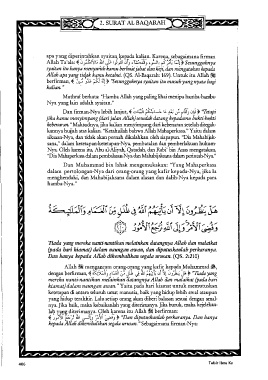 2. SURAT AL BAQARAH
apa yang diperintahkan syaitan kepada kalian. Karena, sebagaimana firman
Allah Ta'ala: Sesungguhnya
syaitan itu hanya menyuruh kamu berbuat jahat dan keji, dan mengatakan kepada
Allah apa yang tidak kamu ketahui. (QS. Al-Baqarah: 169). Untuk itu Allah
berfirman, "Sesungguhnya syaitan itu musuh yang nyata bagi
kalian."
Mathraf berkata: "Hamba Allah yang paling
Nya yang lain adalah syaitan."
Dan firman-Nya lebih lanjut, "Tetapi
jika kamu menyimpang (dari jalan Allah) sesudah datang kepadamu bukti-bukti
kebenaran." Maksudnya, jika kalian menyimpang dari kebenaran setelah
kannya hujjah atas kalian. "Ketahuilah bahwa Allah Mahaperkasa." Yaitu dalam
siksaan-Nya, dan tidak akan pernah dikalahkan oleh siapapun. "Dia Mahabijak-
sana," dalam ketetapan-ketetapan-Nya,
Nya. Oleh karena itu, Abu al-Aliyah, Qatadah, dan Rabi' bin Anas mengatakan,
"Dia Mahaperkasa dalam pembalasan-Nya dan Mahabijaksana dalam perintah-Nya."
Dan Muhammad bin Ishak mengatakan: "Yang Mahaperkasa
dalam pertolongan-Nya dari orang-orang yang kafir kepada-Nya, jika Ia
menghendaki, dan Mahabijaksana dalam alasan dan dalih-Nya kepada para
hamba-Nya."
هَلْ يَنظُرُونَ إِلَّا أَن يَأْتِيَهُمُ اللَّهُ فِي ظُلَلٍ مِّنَ الْغَمَامِ وَالْمَلَائِكَةُ
وَقُضِيَ الْأَمْرُ وَإِلَى اللَّهِ تُرْجَعُ الْأُمُورُ
Tiada yang mereka nanti-nantikan melainkan datangnya Allah dan malaikat
(pada hari kiamat) dalam naungan awan, dan diputuskanlah perkaranya.
Dan hanya kepada Allah dikembalikan segala urusan. (QS. 2:210)
Allah mengancam orang-orang yang kafir kepada Muhammad,
dengan berfirman, "Tiada yang
mereka nanti-nantikan melainkan datangnya Allah dan malaikat (pada hari
kiamat) dalam naungan awan." Yaitu pada hari kiamat untuk memutuskan
yang hidup terakhir. Lalu setiap orang akan diberi balasan sesuai dengan amal-
nya. Jika baik, maka kebaikanlah yang diterimanya. Jika buruk, maka kejelekan-
lah yang diterimanya. Oleh karena itu Allah berfirman:
"Dan diputuskanlah perkaranya. Dan hanya
kepada Allah dikembalikan segala urusan." Sebagaimana firman-Nya:
Tafsir Ibnu Ka